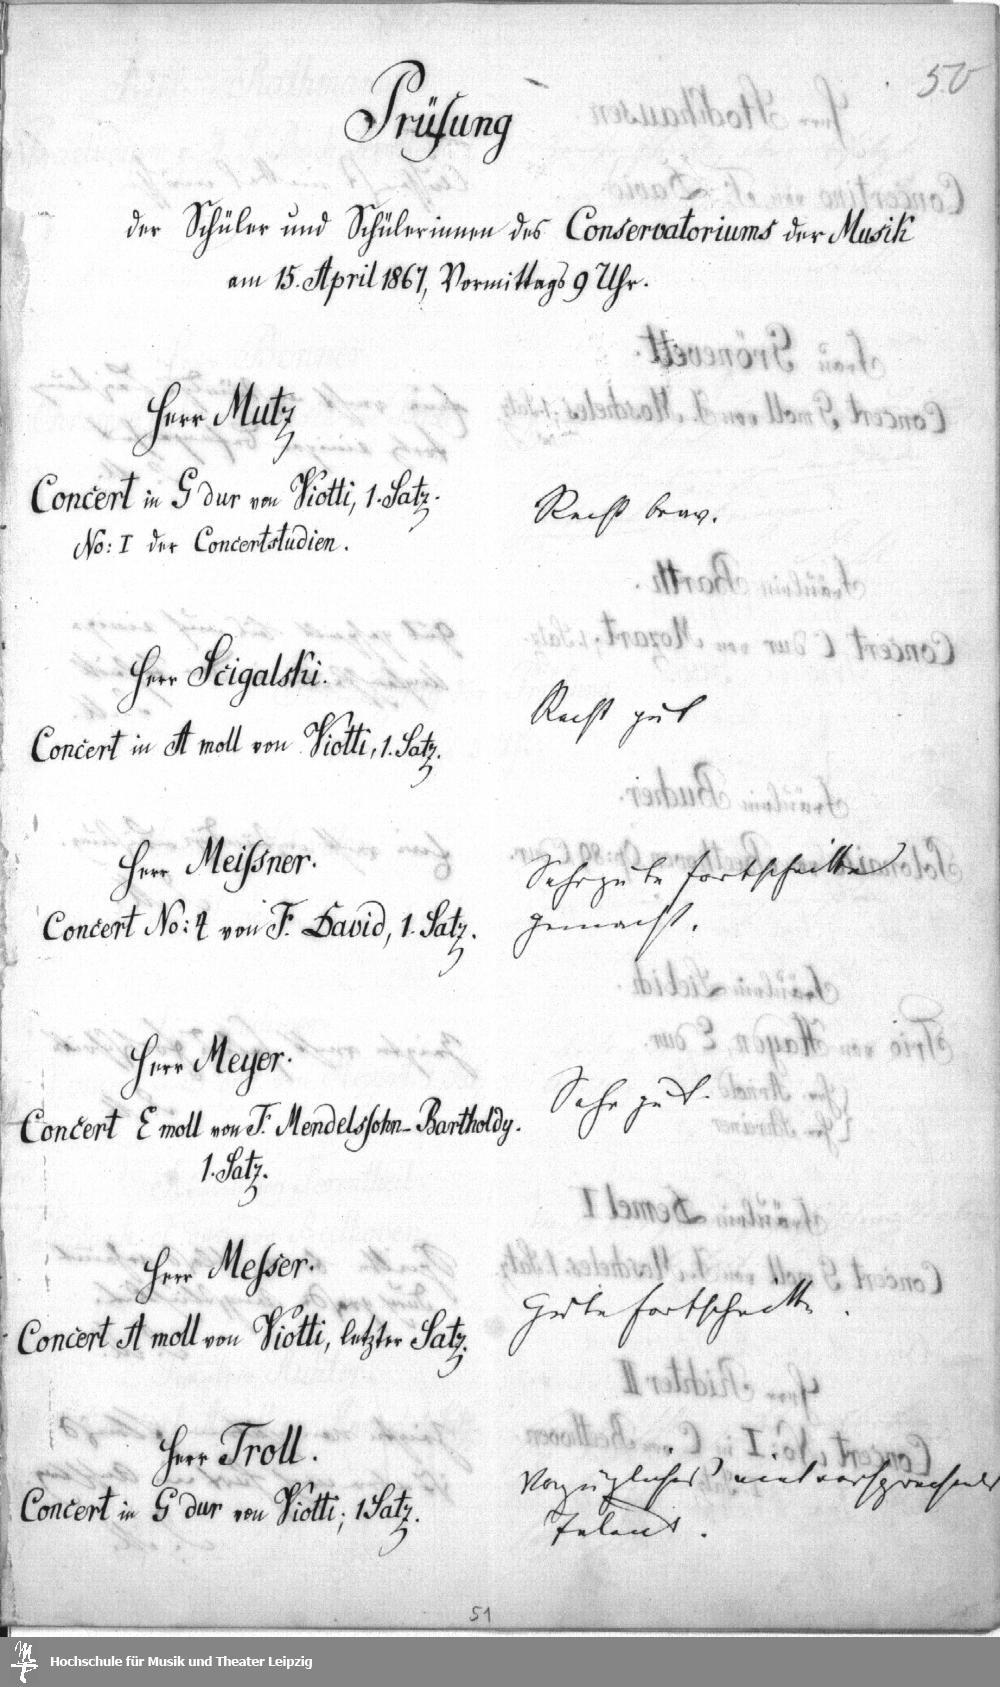 50
Prüfung
der Schüler und Schülerinnen des Conservatoriums der Musik
am 15. April 1867, Vormittags 9 Uhr.
Herr Mutz
Concert in G dur von Viotti, 1. Satz.
No: I der Concertstudien.
Recht brav.
Herr Scigalski.
Concert in A moll von Viotti, 1. Satz.
Recht gut
Herr Meißner.
Concert No: 4 von F. David, 1. Satz.
Sehr gute Fortschritte
gemacht.
Herr Meyer.
Concert E moll von F. Mendelssohn-Bartholdy.
1. Satz.
Sehr gut.
Herr Messer.
Concert A moll von Viotti, letzter Satz.
Gute Fortschritte.
Herr Troll.
Concert in G dur von Viotti; 1 Satz.
Vorzügliches, vielversprechendes
Talent.
51
Hochschule für Musik und Theater Leipzig